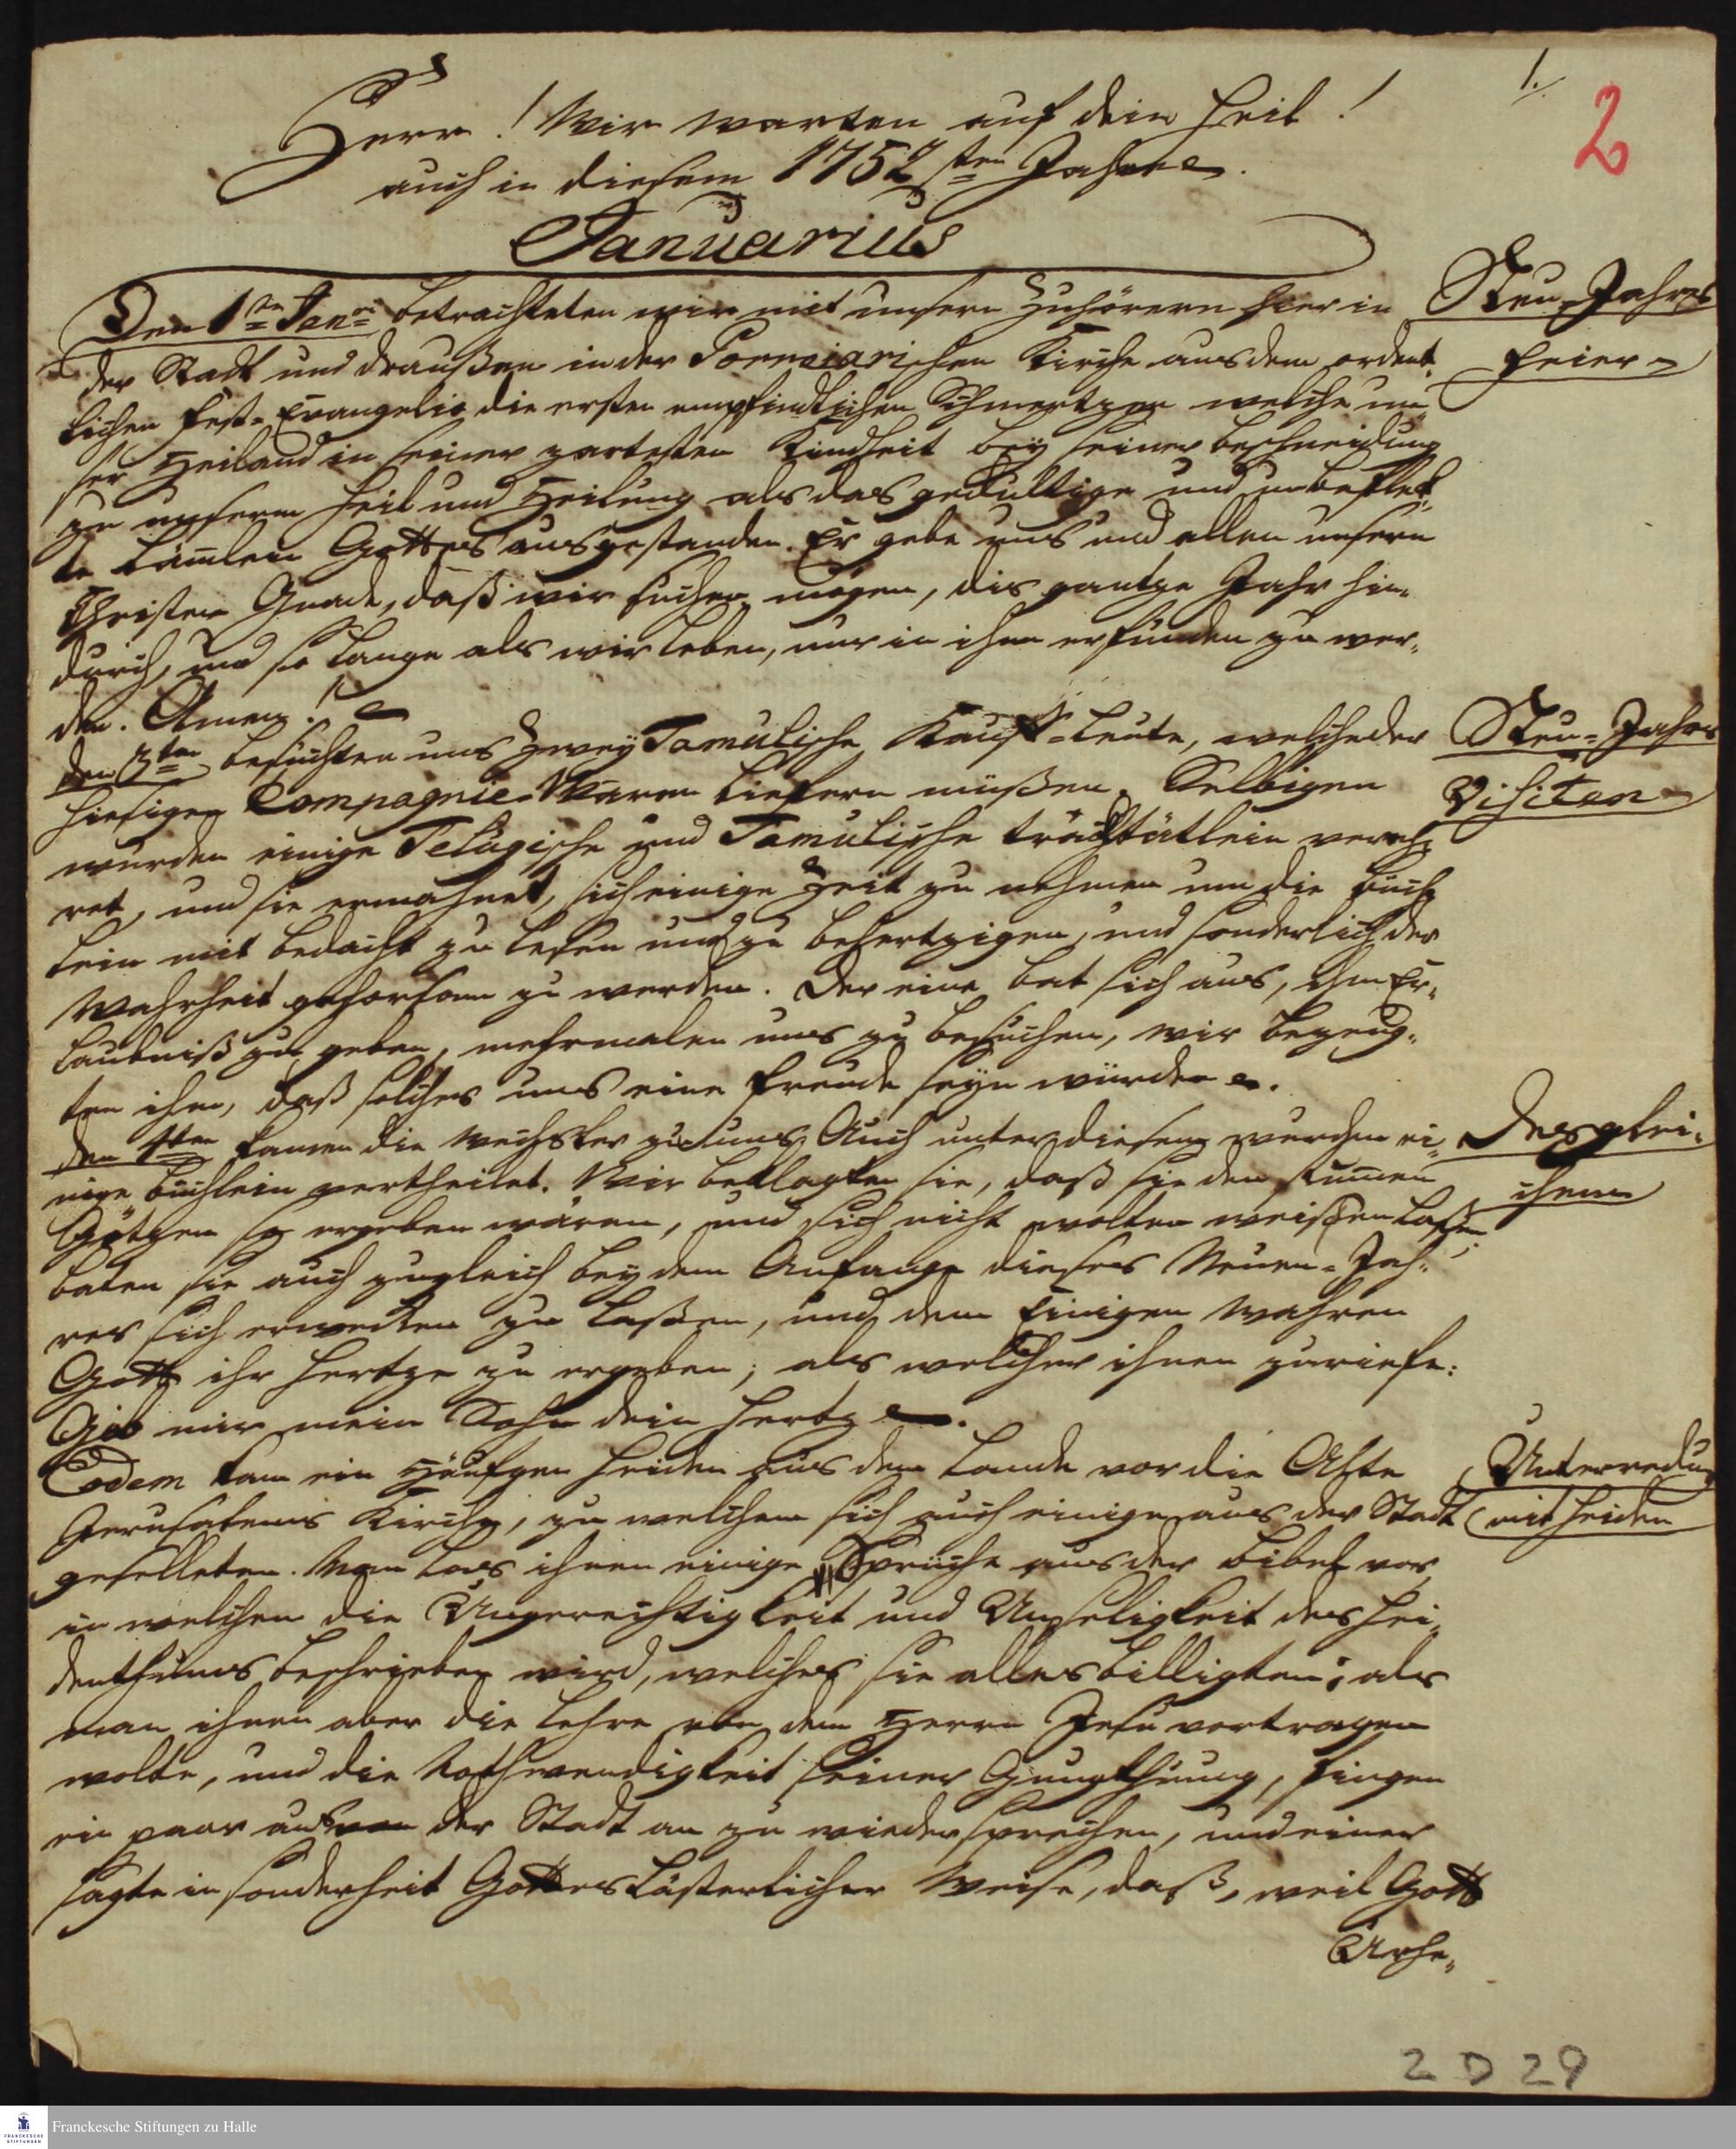 1.
2
Herr! Wir warten auf dein Heil!
auch in diesem 1752sten Jahre.
Januarius
Den 1ten Janri betrachteten wir mit unsern Zuhörern hier in
Neu-Jahrs
der Stadt und draußen in der Poreiarischen Kirche aus dem ordent-
Feier
lichen Fest-Evangelio die ersten empfindlichen Schmertzen welche un-
ser Heiland in seiner zartesten Kindheit bey seiner Beschneidung
zu unserm Heil und Heilung als das gedultige und unbeflek-
te Lämlein Gottes ausgestanden. Er gebe uns und allen unsern
Christen Gnade, daß wir suchen mögen, dis gantze Jahr hin-
durch, und so lange als wir leben, nur in ihm erfunden zu wer-
den. Amen!
den 3ten besuchten uns zwey Tamulische Kauff-Leute, welche der
Neu-Jahrs
hiesigen Compagnie Waren liefern müßen. Selbigen
Visiten
wurden einige Telugische und Tamulische Tractätlein vereh-
ret, und sie ermahnet, sich einige Zeit zu nehmen um die Büch-
lein mit Bedacht zu lesen und zu behertzigen, und sonderlich der
Wahrheit gehorsam zu werden. Der eine bat sich aus, ihm Er-
laubniß zu geben, mehrmalen uns zu besuchen, wir bezeug-
ten ihm, daß solches uns eine Freude seyn würde.
den 4ten kamen die Wechsler zu uns. Auch unter diesen wurden ei-
Desglei-
nige Büchlein vertheilet. Wir beklagten sie, daß sie den stummen
chen
Götzen so ergeben wären, und sich nicht wolten weisen laßen;
baten sie auch zugleich bey dem Anfange dieses Neuen-Jah-
res sich erwecken zu laßen, und dem Einigen wahren
Gott ihr Hertze zu ergeben; als welcher ihnen zuriefe:
Gib mir mein Sohn dein Hertz.
Eodem kam ein Häufgen Heiden aus dem Lande vor die Alte
Unterredung
Jerusalems Kirche, zu welchen sich auch einige aus der Stadt
mit Heiden
geselleten. Man las ihnen einige Sprüche aus der Bibel vor,
in welchen die Ungerechtigkeit und Unseligkeit des Hei-
denthums beschrieben wird, welches sie alles billigten; als
man ihnen aber die Lehre von dem Herrn Jesu vortragen
wolte, und die Nothwendigkeit seiner Gnugthuung, fingen
ein paar aus der Stadt an zu wiedersprechen, und einer
sagte in sonderheit Gotteslästerlicher Weise, daß, weil Gott
Urhe-
2 D 29
Franckesche Stiftungen zu Halle
FRANCKESCHE
STIFTUNGEN